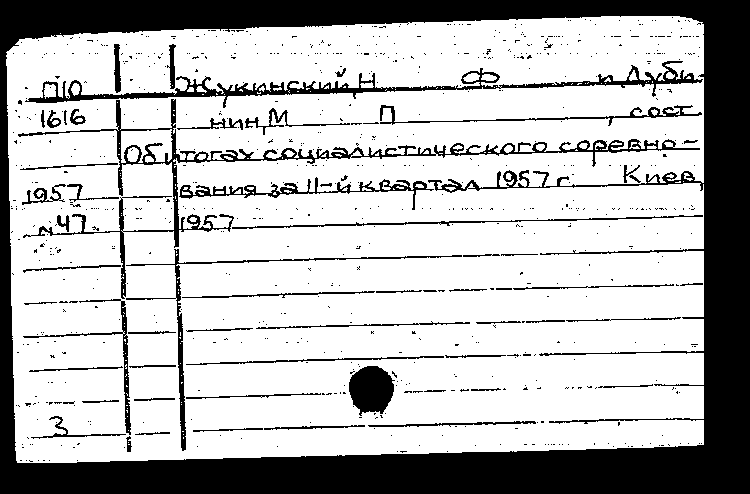 П10 Жукинский,Н Ф и Дуби-
1616 нин,М П , сост.
Об итогах социалистического соревно-
1957 вания за II-й квартал 1957 г. Киев,
№47 1957
3